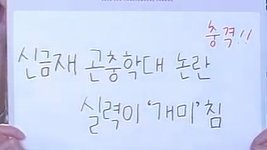 충격!!
신금재 곤충학대 논란
실력이 '개미'침